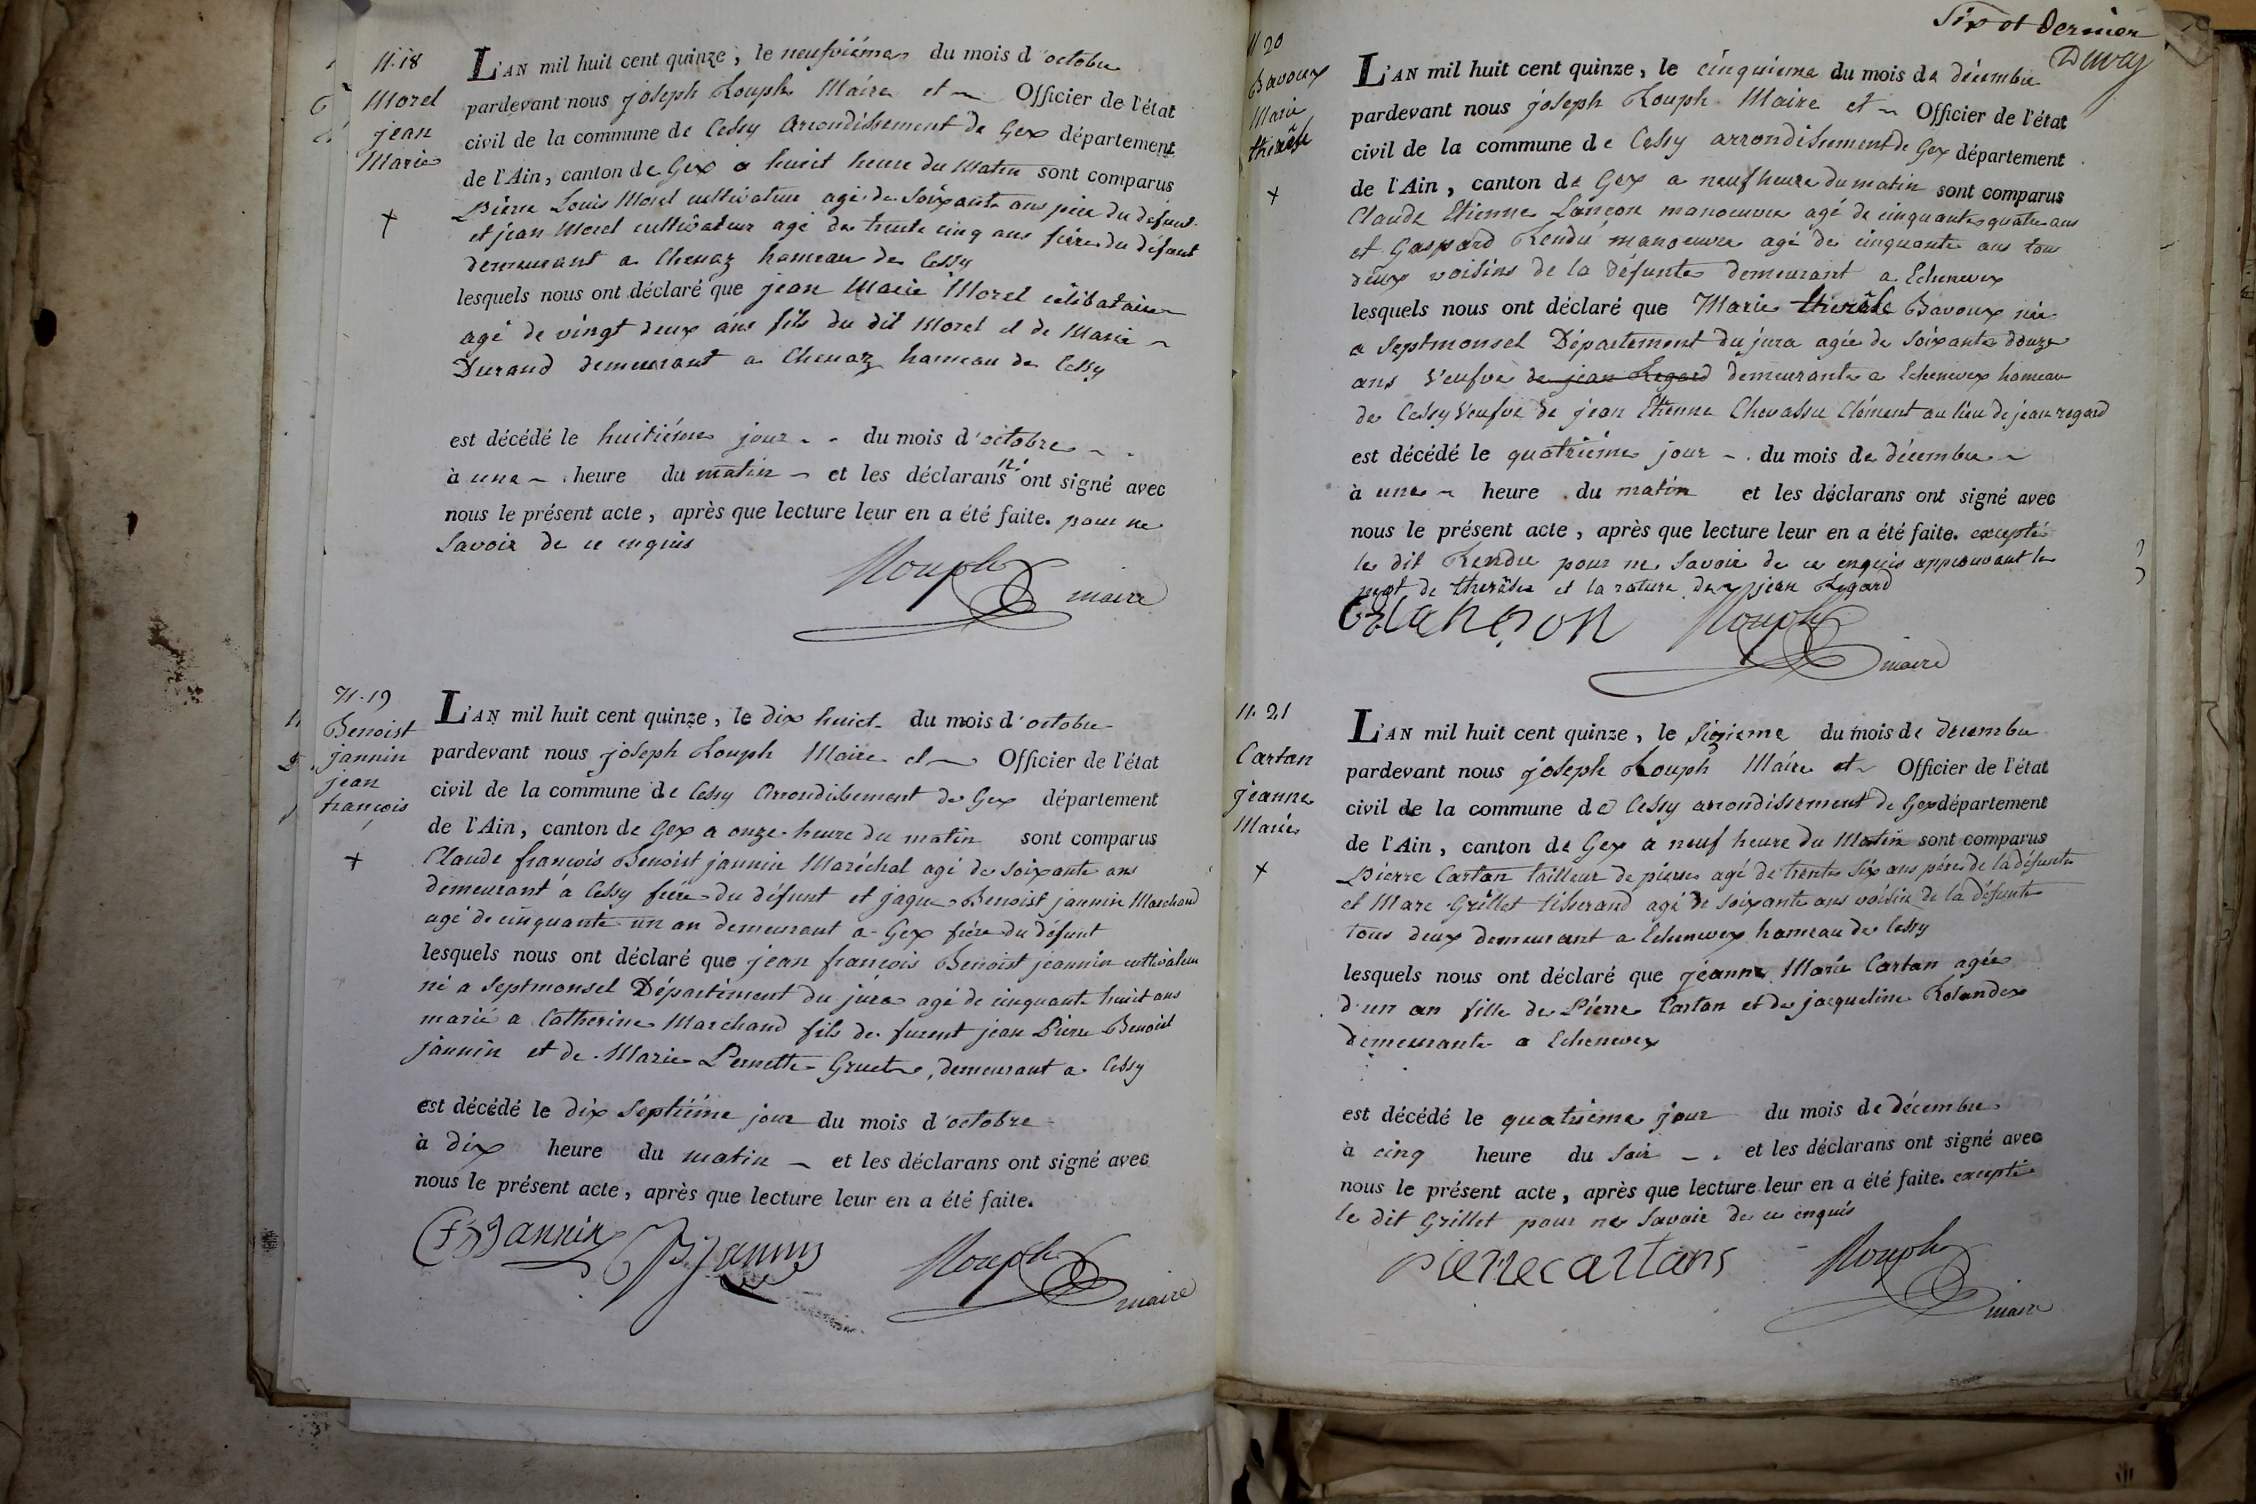 N. 18
Morel
jean
Marie
L'AN mil huit cent quinze, le neufviéme du mois d'octobre
pardevant nous joseph Rouph Maire et Officier de l'état
civil de la commune de Cessy Arrondissement de Gex département
de l'Ain, canton de Gex a huit heure du Matin sont comparus
Pierre Louis Morel cultivateur agé de soixante ans père du défunt
et jean Morel cultivateur agé de trente cinq ans frère du défunt
demeurant a Chenaz hameau de Cessy
lesquels nous ont déclaré que jean Marie Morel célibataire
agé de vingt deux ans fils du dit Morel et de Marie
Durand demeurant a Chenaz hameau de Cessy
est décédé le huitiéme jour du mois d'octobre
à une heure du matin et les déclarans n' ont signé avec
nous le présent acte, après que lecture leur en a été faite. pour ne
savoir de ce enquis
Rouph
maire
N. 19
Benoist
jannin
jean
françois
L'AN mil huit cent quinze, le dix huict du mois d'octobre
pardevant nous joseph Rouph Maire et Officier de l'état
civil de la commune de Cessy Arrondissement de Gex département
de l'Ain, canton de Gex a onze heure du matin sont comparus
Claude françois Benoist jannin Maréchal agé de soixante ans
demeurant à Cessy frère du défunt et jaque Benoist jannin Marchand
agé de cinquante un an demeurant a Gex frère du défunt
lesquels nous ont déclaré que jean françois Benoist jeannin cultivateur
né a Septmonsel Département du jura agé de cinquante huict ans
marié a Catherine Marchand fils de furent jean Pierre Benoist
jannin et de Marie Pernette Gruet, demeurant a Cessy
est décédé le dix septiéme jour du mois d'octobre
à dix heure du matin et les déclarans ont signé avec
nous le présent acte, après que lecture leur en a été faite.
jannin Rouph
maire
Six et Dernier
Duvay
N 20
Bavoux
Marie
thérèse
L'AN mil huit cent quinze, le cinquieme du mois de décembre
pardevant nous joseph Rouph Maire et Officier de l'état
civil de la commune de Cessy arrondissement de Gex département
de l'Ain, canton de Gex a neuf heure du matin sont comparus
Claude Etienne Lançon manoeuvre agé de cinquante quatre ans
et Gaspard Rendu manoeuvre agé de cinquante ans tous
deux voisins de la défunte demeurant a Echenevex
lesquels nous ont déclaré que Marie thérèse Bavoux née
a Septmonsel Département du jura agée de soixante douze
ans veufve de jean Regard demeurante a Echenevex hameau
de Cessy veufve de jean Etienne Chevassu Clément au lieu de jean regard
est décédé le quatriéme jour du mois de décembre
à une heure du matin et les déclarans ont signé avec
nous le présent acte, après que lecture leur en a été faite. excepté
le dit Rendu pour ne savoir de ce enquis approuvant le
mot de thérèse et la rature de jean Regard
lançon Rouph
maire
N. 21
Cartan
jeanne
Marie
L'AN mil huit cent quinze, le sixieme du mois de decembre
pardevant nous joseph Rouph Maire et Officier de l'état
civil de la commune de Cessy arrondissement de Gex département
de l'Ain, canton de Gex a neuf heure du Matin sont comparus
Pierre Cartan tailleur de pierre agé de trente six ans père de la défunte
et Marc Grillet tisserand agé de soixante ans voisin de la défunte
tous deux demeurant a Echenevex hameau de Cessy
lesquels nous ont déclaré que jeanne Marie Cartan agée
d'un an fille de Pierre Cartan et de jacqueline Rolandex
demeurante a Echenevex
est décédé le quatrieme jour du mois de décembre
à cinq heure du soir et les déclarans ont signé avec
nous le présent acte, après que lecture leur en a été faite. excepté
le dit Grillet pour ne savoir de ce enquis
pierre cartans Rouph
maire